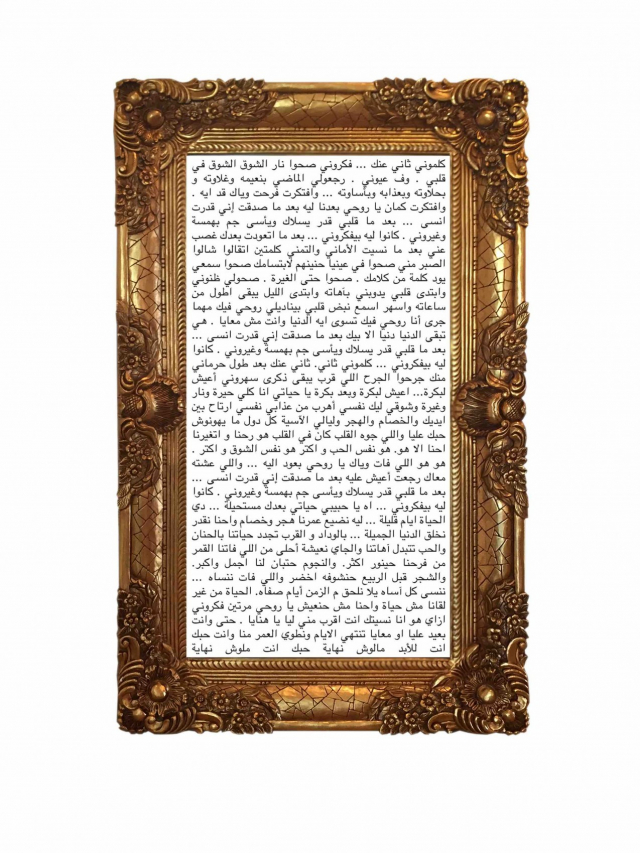 كلموني ثاني عنك ... فكروني صحوا نار الشوق الشوق في
قلبي . وف عيوني . رجعولي الماضي بنعيمه وغلاوته و
بحلاوته وبعذابه وبأساوته ... وافتكرت فرحت وياك قد ايه .
وافتكرت كمان يا روحي بعدنا ليه بعد ما صدقت إني قدرت
انسى ... بعد ما قلبي قدر يسلاك ويأسى جم بهمسة
وغيروني . كانوا ليه بيفكروني ... بعد ما اتعودت بعدك غصب
عني بعد ما نسيت الأماني والتمني كلمتين اتقالوا شالوا
الصبر مني صحوا في عينيا حنينهم لابتسامك صحوا سمعي
يود كلمة من كلامك . صحوا حتى الغيرة . صحولي ظنوني
وابتدى قلبي يدوبني بآهاته وابتدى الليل يبقى أطول من
ساعاته واسهر اسمع نبض قلبي بيناديلي روحي فيك مهما
جرى أنا روحي فيك تسوى ايه الدنيا وانت مش معايا . هي
تبقى الدنيا دنيا الا بيك بعد ما صدقت إني قدرت انسى ...
بعد ما قلبي قدر يسلاك ويأسى جم بهمسة وغيروني . كانوا
ليه بيفكروني ... كلموني ثاني. ثاني عنك بعد طول حرماني
منك جرحوا الجرح اللي قرب يبقى ذكرى سهروني أعيش
لبكرة... اعيش لبكرة وبعد بكرة يا حياتي انا كلي حيرة ونار
وغيرة وشوقي ليك نفسي أهرب من عذابي نفسي ارتاح بين
ايديك والخصام والهجر وليالي الآسية كل دول ما يهونوش
حبك عليا واللي جوه القلب كان في القلب هو رحنا و اتغيرنا
احنا الا هو. هو نفس الحب و اكثر هو نفس الشوق و اكثر .
هو هو اللي فات وياك يا روحي بعود اليه ... واللي عشته
معاك رجعت أعيش عليه بعد ما صدقت إني قدرت انسى ...
بعد ما قلبي قدر يسلاك ويأسى جم بهمسة وغيروني . كانوا
ليه بيفكروني ... اه يا حبيبي حياتي بعدك مستحيلة ... دي
الحياة ايام قليلة ... ليه نضيع عمرنا هجر وخصام واحنا نقدر
نخلق الدنيا الجميلة ... بالوداد و القرب تجدد حياتنا بالحنان
والحب تتبدل آهاتنا والجاي نعيشة أحلى من اللي فاتنا القمر
من فرحنا حينور اكثر. والنجوم حتبان لنا أجمل واكبر.
والشجر قبل الربيع حنشوفه اخضر واللي فات ننساه ...
ننسى كل آساه يلا نلحق م الزمن أيام صفاه. الحياة من غير
لقانا مش حياة واحنا مش حنعيش يا روحي مرتين فكروني
ازاي هو انا نسيتك انت اقرب مني ليا يا هنايا . حتى وانت
بعيد عليا او معايا تنتهي الايام ونطوي العمر منا وانت حبك
انت للأبد مالوش نهاية حبك انت ملوش نهاية